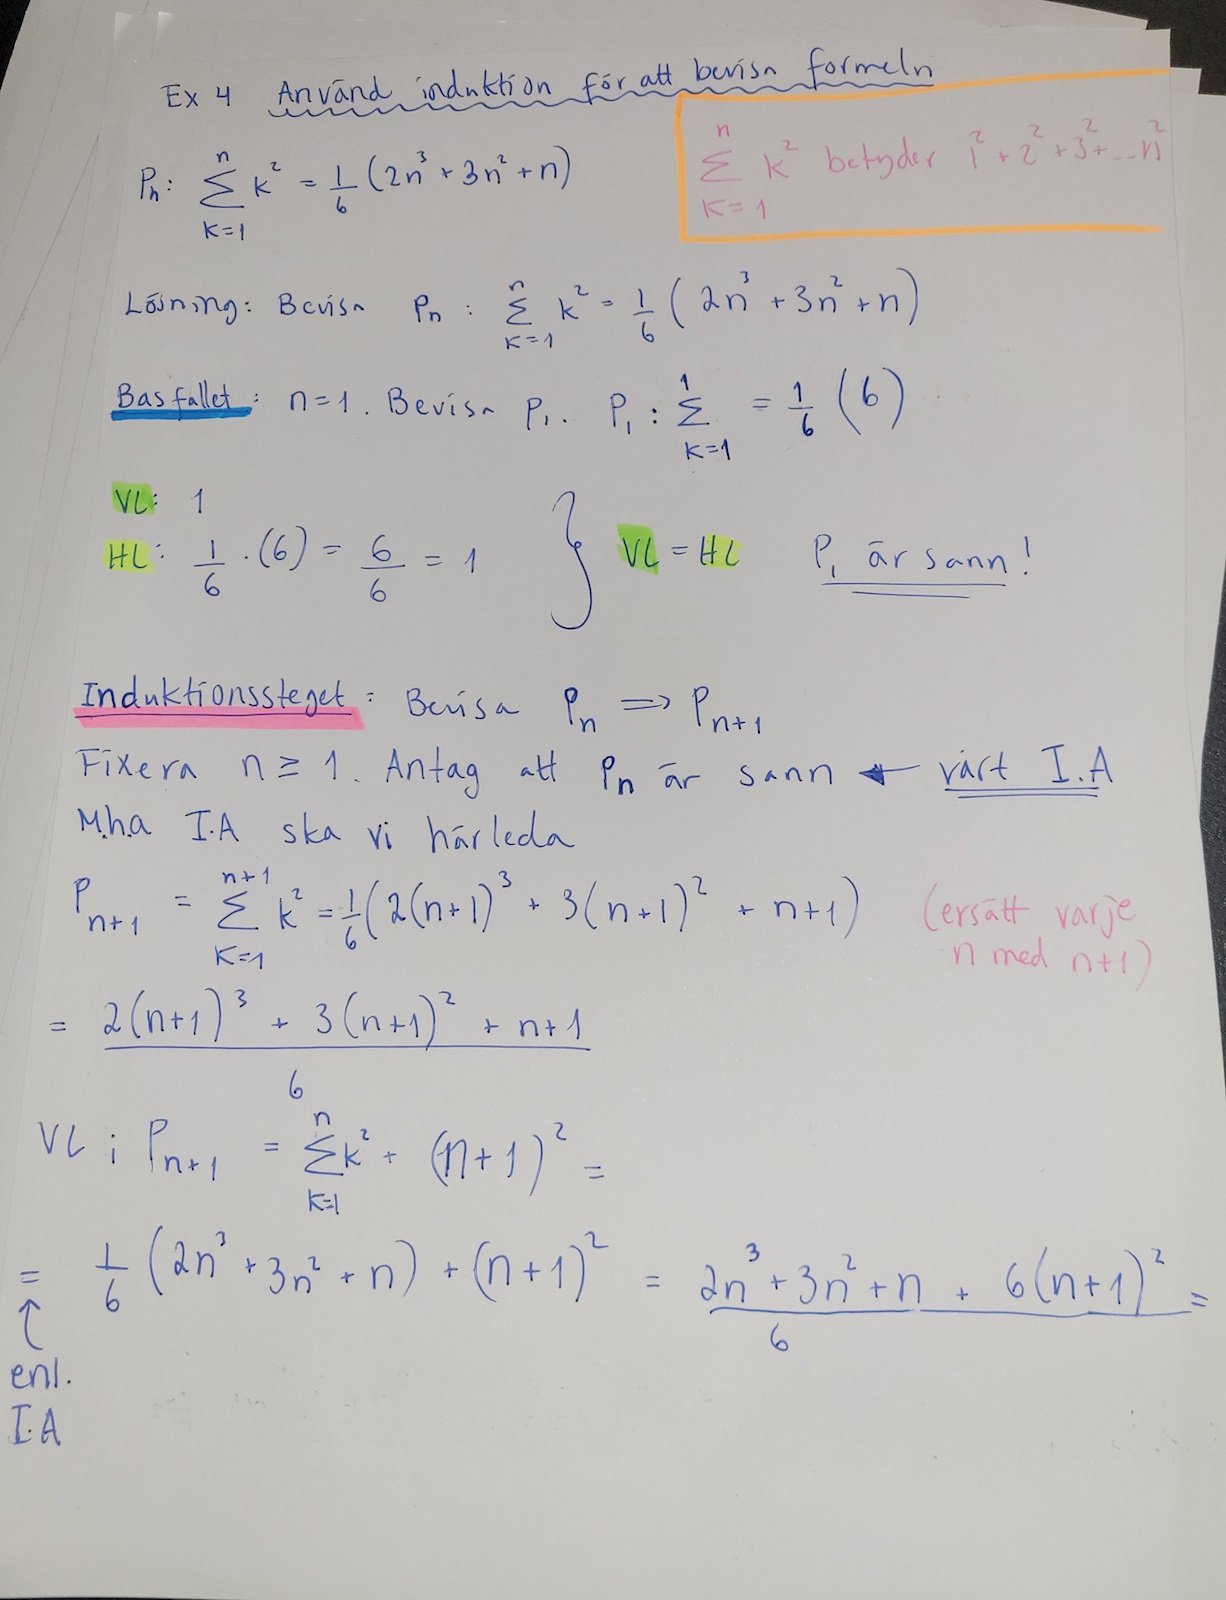 Ex 4 Använd induktion för att bevisa formeln
Pn: n Σ k=1 k² = 1/6 (2n³ + 3n² + n)
n Σ k=1 k² betyder 1² + 2² + 3² + ... n²
Lösning: Bevisa Pn : n Σ k=1 k² = 1/6 (2n³ + 3n² + n)
Basfallet: n=1. Bevisa P₁. P₁ : 1 Σ k=1 = 1/6 (6)
VL: 1
HL: 1/6 · (6) = 6/6 = 1 } VL = HL P₁ är sann!
Induktionssteget: Bevisa Pn ⇒ Pn+1
Fixera n ≥ 1. Antag att Pn är sann ← vårt I.A
M.h.a I.A ska vi härleda
Pn+1 = n+1 Σ k=1 k² = 1/6 (2(n+1)³ + 3(n+1)² + n+1) (ersätt varje
n med n+1)
= 2(n+1)³ + 3(n+1)² + n+1 / 6
VL i Pn+1 = n Σ k=1 k² + (n+1)² =
= 1/6 (2n³ + 3n² + n) + (n+1)² = 2n³ + 3n² + n + 6(n+1)² / 6 =
↑
enl.
I.A